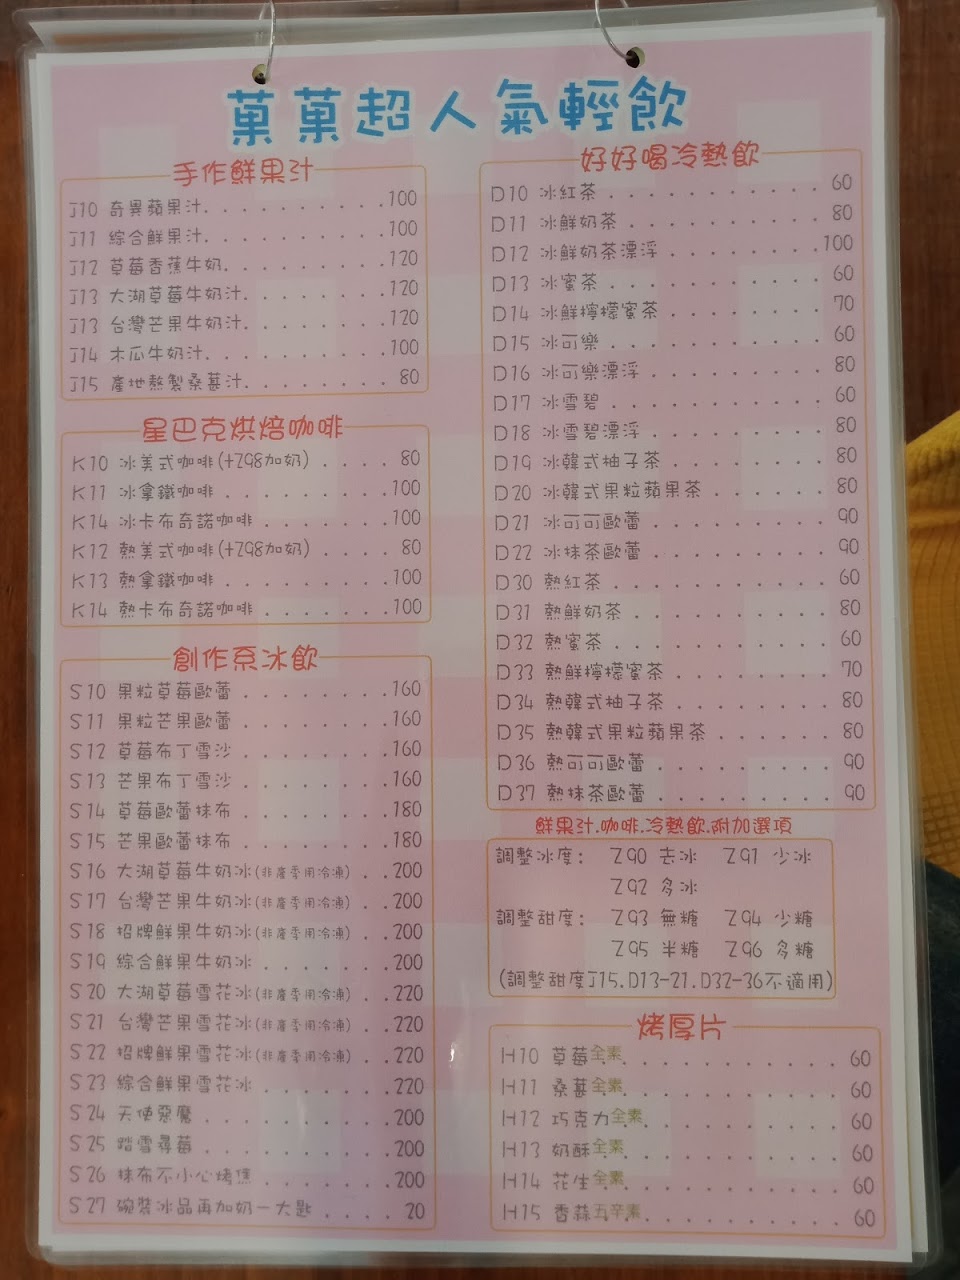 菓菓超人氣輕飲
手作鮮果汁
J10 奇異蘋果汁. . . . . . . . . .100
J11 綜合鮮果汁. . . . . . . . . .100
J12 草莓香蕉牛奶. . . . . . . . .120
J13 大湖草莓牛奶汁. . . . . . . .120
J13 台灣芒果牛奶汁. . . . . . . .120
J14 木瓜牛奶汁. . . . . . . . . .100
J15 產地熬製桑葚汁. . . . . . . . 80
星巴克烘焙咖啡
K10 冰美式咖啡(+Z98加奶) . . . . 80
K11 冰拿鐵咖啡 . . . . . . . . .100
K14 冰卡布奇諾咖啡 . . . . . . .100
K12 熱美式咖啡(+Z98加奶) . . . . 80
K13 熱拿鐵咖啡 . . . . . . . . .100
K14 熱卡布奇諾咖啡 . . . . . . .100
創作系冰飲
S10 果粒草莓歐蕾 . . . . . . . .160
S11 果粒芒果歐蕾 . . . . . . . .160
S12 草莓布丁雪沙 . . . . . . . .160
S13 芒果布丁雪沙 . . . . . . . .160
S14 草莓歐蕾抹布 . . . . . . . .180
S15 芒果歐蕾抹布 . . . . . . . .180
S16 大湖草莓牛奶冰(非產季用冷凍) . .200
S17 台灣芒果牛奶冰(非產季用冷凍) . .200
S18 招牌鮮果牛奶冰(非產季用冷凍) . .200
S19 綜合鮮果牛奶冰 . . . . . . .200
S20 大湖草莓雪花冰(非產季用冷凍) . .220
S21 台灣芒果雪花冰(非產季用冷凍) . .220
S22 招牌鮮果雪花冰(非產季用冷凍) . .220
S23 綜合鮮果雪花冰 . . . . . . .220
S24 天使惡魔 . . . . . . . . . .200
S25 踏雪尋莓 . . . . . . . . . .200
S26 抹布不小心烤焦 . . . . . . .200
S27 碗裝冰品再加奶一大匙 . . . . 20
好好喝冷熱飲
D10 冰紅茶 . . . . . . . . . . . . 60
D11 冰鮮奶茶 . . . . . . . . . . . 80
D12 冰鮮奶茶漂浮 . . . . . . . . .100
D13 冰蜜茶 . . . . . . . . . . . . 60
D14 冰鮮檸檬蜜茶 . . . . . . . . . 70
D15 冰可樂 . . . . . . . . . . . . 60
D16 冰可樂漂浮 . . . . . . . . . . 80
D17 冰雪碧 . . . . . . . . . . . . 60
D18 冰雪碧漂浮 . . . . . . . . . . 80
D19 冰韓式柚子茶 . . . . . . . . . 80
D20 冰韓式果粒蘋果茶 . . . . . . . 80
D21 冰可可歐蕾 . . . . . . . . . . 90
D22 冰抹茶歐蕾 . . . . . . . . . . 90
D30 熱紅茶 . . . . . . . . . . . . 60
D31 熱鮮奶茶 . . . . . . . . . . . 80
D32 熱蜜茶 . . . . . . . . . . . . 60
D33 熱鮮檸檬蜜茶 . . . . . . . . . 70
D34 熱韓式柚子茶 . . . . . . . . . 80
D35 熱韓式果粒蘋果茶 . . . . . . . 80
D36 熱可可歐蕾 . . . . . . . . . . 90
D37 熱抹茶歐蕾 . . . . . . . . . . 90
鮮果汁.咖啡.冷熱飲.附加選項
調整冰度: Z90 去冰 Z91 少冰
Z92 多冰
調整甜度: Z93 無糖 Z94 少糖
Z95 半糖 Z96 多糖
(調整甜度J15.D13-21.D32-36不適用)
烤厚片
H10 草莓全素. . . . . . . . . . . 60
H11 桑葚全素. . . . . . . . . . . 60
H12 巧克力全素. . . . . . . . . . 60
H13 奶酥全素. . . . . . . . . . . 60
H14 花生全素. . . . . . . . . . . 60
H15 香蒜五辛素. . . . . . . . . . 60